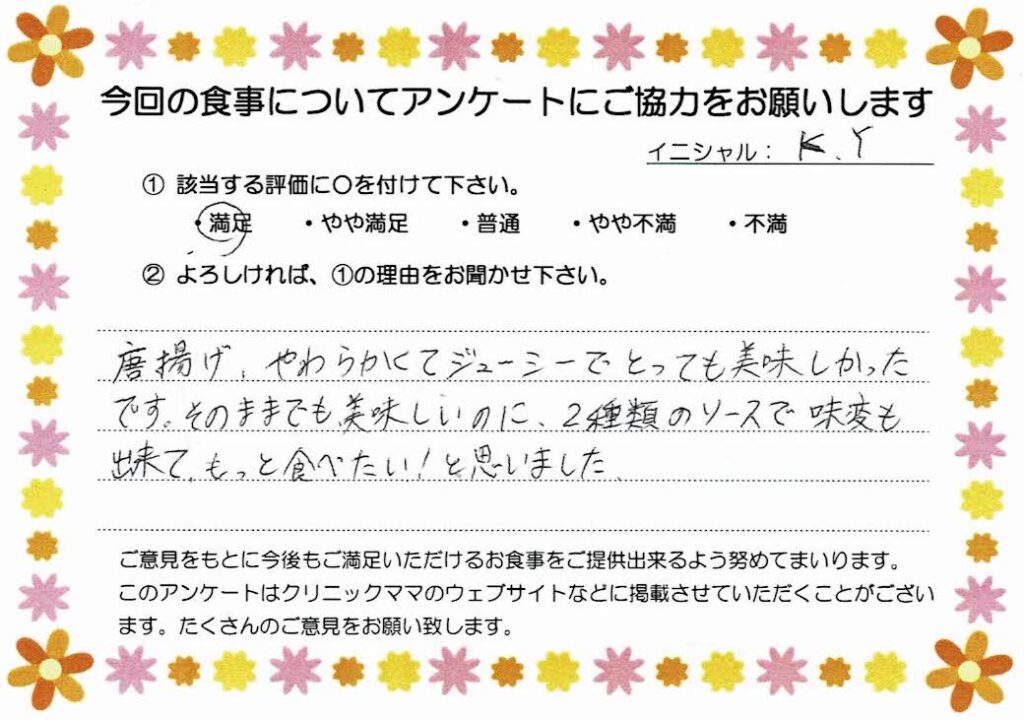 今回の食事についてアンケートにご協力をお願いします
イニシャル： K.Y
① 該当する評価に〇を付けて下さい。
・満足 ・やや満足 ・普通 ・やや不満 ・不満
② よろしければ、①の理由をお聞かせ下さい。
唐揚げ、やわらかくてジューシーでとっても美味しかった
です。そのままでも美味しいのに、2種類のソースで味変も
出来て、もっと食べたい！と思いました。
ご意見をもとに今後もご満足いただけるお食事をご提供出来るよう努めてまいります。
このアンケートはクリニックママのウェブサイトなどに掲載させていただくことがござい
ます。たくさんのご意見をお願い致します。